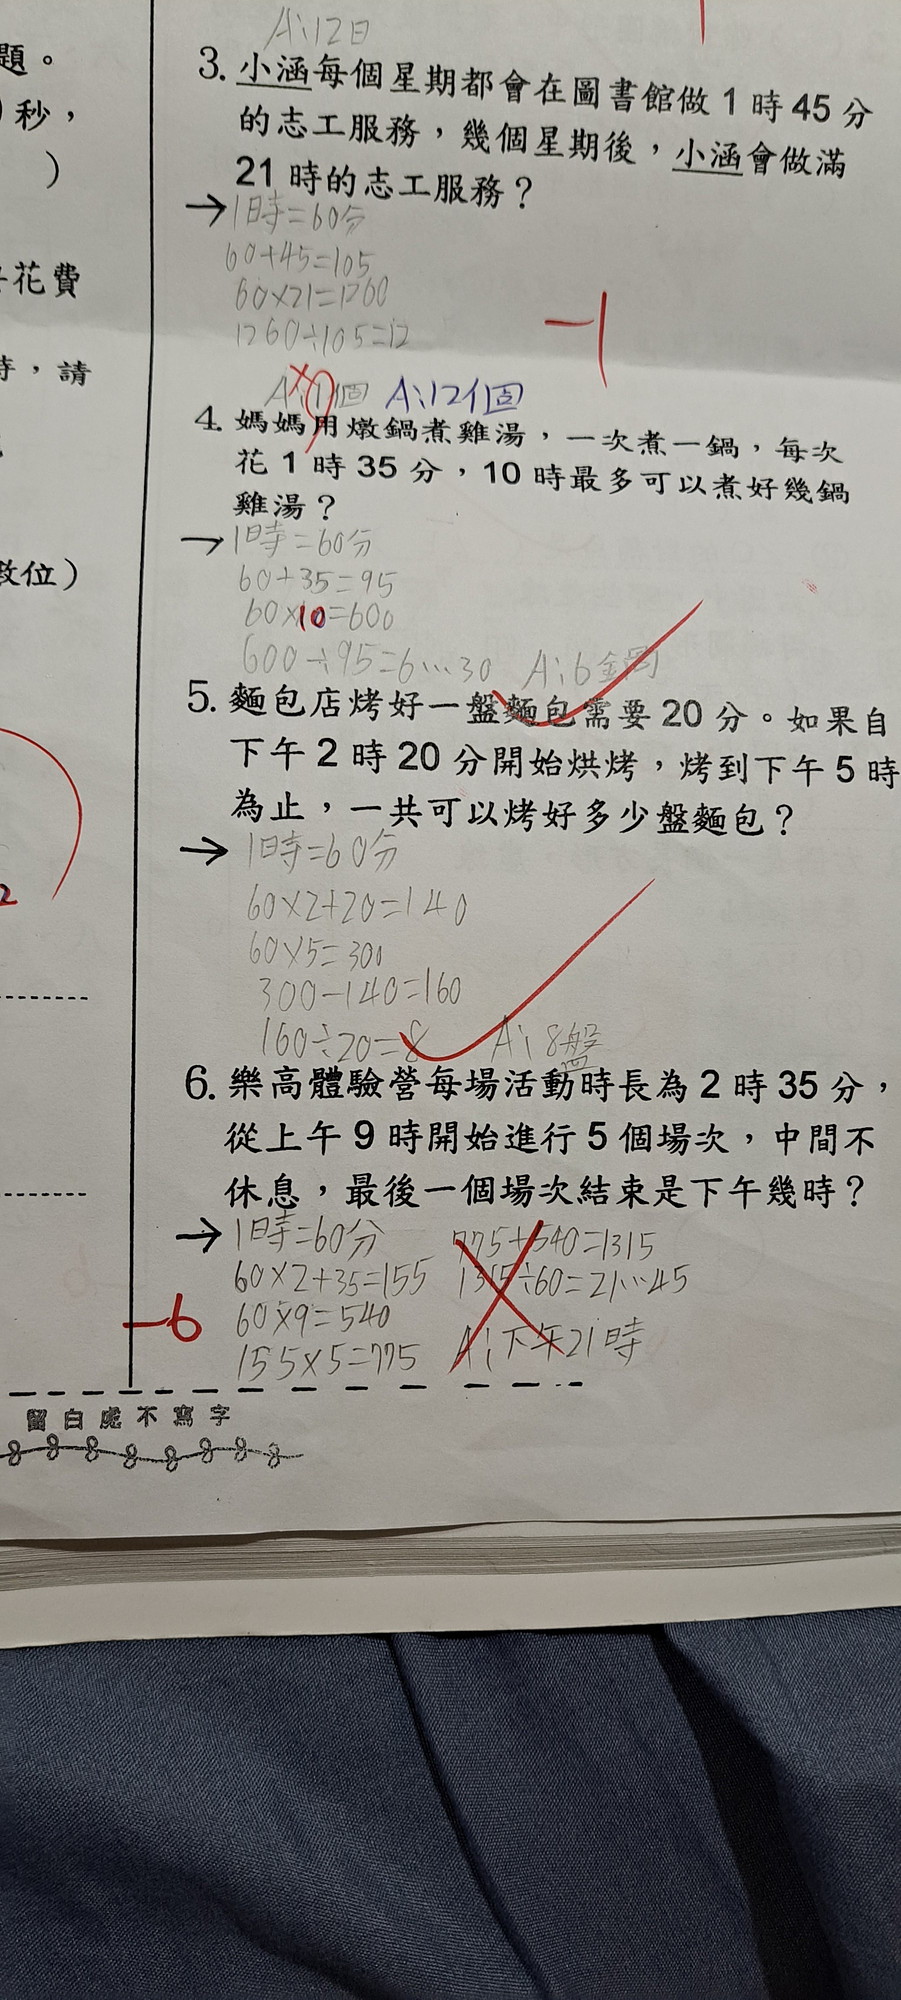 A:12日
題。
秒，
)
花費
時，請
數位)
2
3. 小涵每個星期都會在圖書館做1時45分
的志工服務，幾個星期後，小涵會做滿
21時的志工服務？
→1時=60分
60+45=105
60×21=1260
1260÷105=12
-1
A:12個
4. 媽媽用燉鍋煮雞湯，一次煮一鍋，每次
花1時35分，10時最多可以煮好幾鍋
雞湯？
→1時=60分
60+35=95
60×10=600
600÷95=6…30 A:6鍋
5. 麵包店烤好一盤麵包需要20分。如果自
下午2時20分開始烘烤，烤到下午5時
為止，一共可以烤好多少盤麵包？
→1時=60分
60×2+20=140
60×5=300
300-140=160
160÷20=8 A:8盤
6. 樂高體驗營每場活動時長為2時35分，
從上午9時開始進行5個場次，中間不
休息，最後一個場次結束是下午幾時？
→1時=60分
60×2+35=155
60×9=540
155×5=775
775+540=1315
1315÷60=21…45
A:下午21時
-6
留白處不寫字